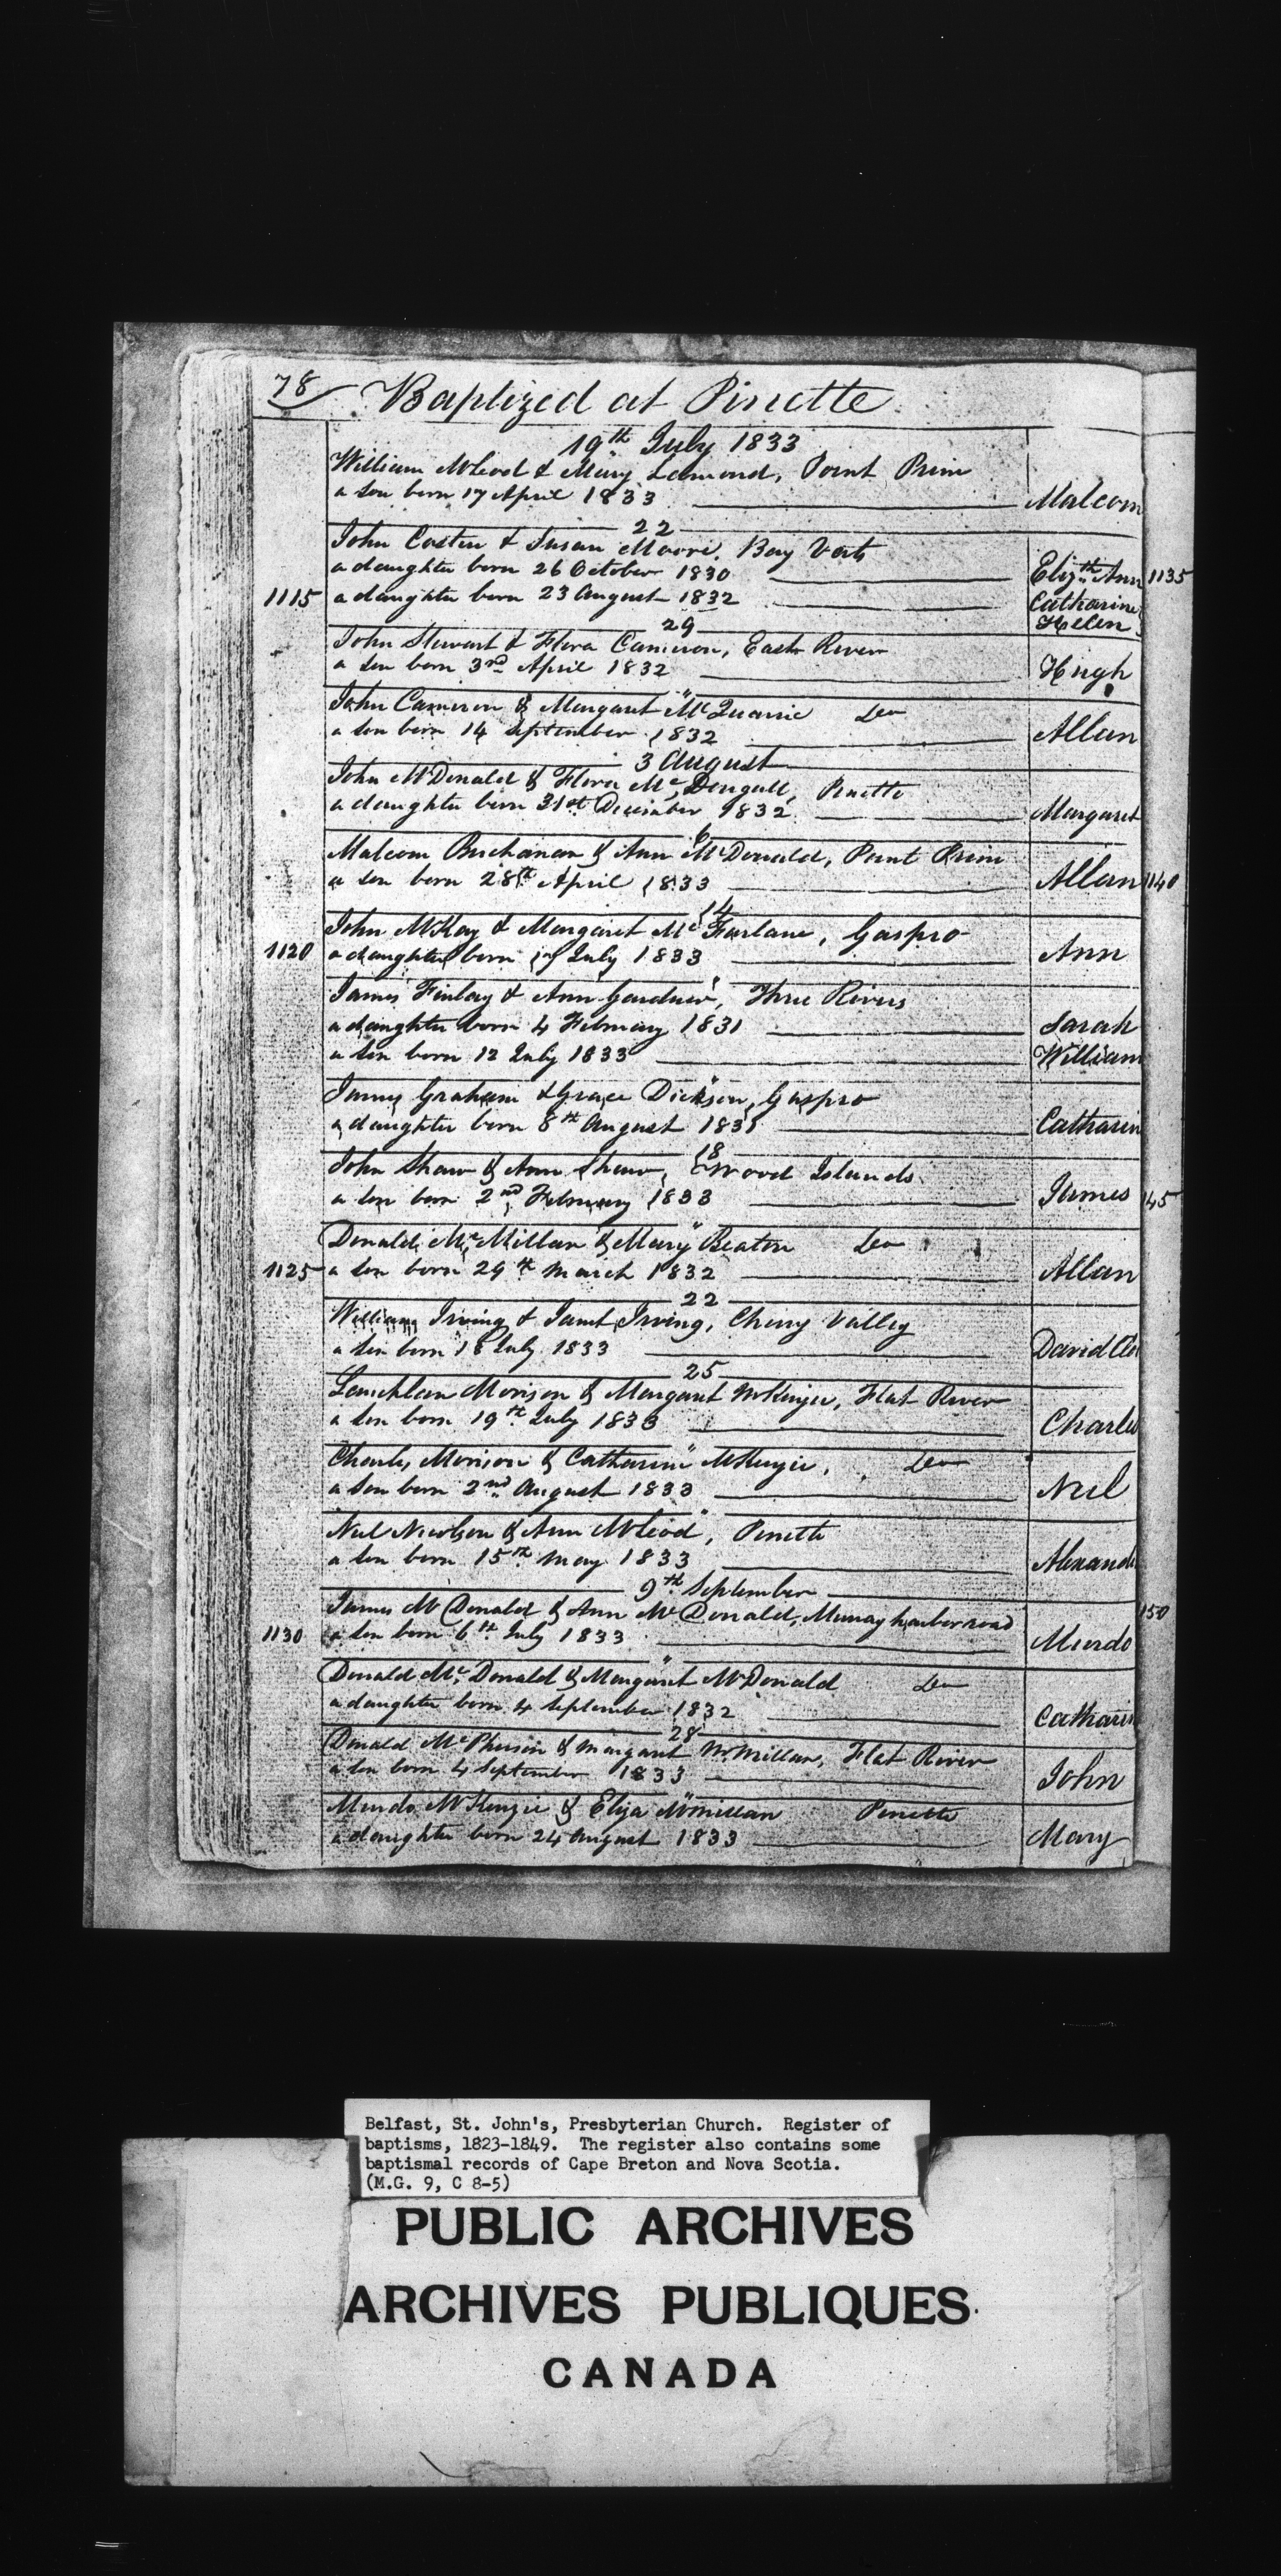 78 Baptized at Pinette
19th July 1833
William McLeod & Mary Lamond, Point Prim
a son born 17 April 1833 Malcom
22
John Costin & Susan Moore, Bay Vert
a daughter born 26 October 1830 Elizth Ann 1135
1115 a daughter born 23 August 1832 Catharine
Helen
29
John Stewart & Flora Cameron, East River
a son born 3rd April 1832 Hugh
"
John Cameron & Margaret McQuarrie Do
a son born 14 September 1832 Allan
3 August
John McDonald & Flora McDougall, Pinette
a daughter born 31st December 1832 Margaret
6
Malcom Buchanan & Ann McDonald, Point Prim
a son born 28th April 1833 Allan 1140
14
John McKay & Margaret McFarlane, Gaspro
1120 a daughter born 17 July 1833 Ann
"
James Finlay & Ann Gardner, Three Rivers
a daughter born 4 February 1831 Sarah
a son born 12 July 1833 William
"
James Graham & Grace Dickson, Gaspro
a daughter born 8th August 1831 Catharin
18
John Shaw & Ann Shaw, Wood Islands
a son born 2nd February 1833 James 145
"
Donald McMillan & Mary Beaton Do
1125 a son born 29th March 1832 Allan
22
William Irving & Janet Irving, Cherry Valley
a son born 18 July 1833 David
25
Lauchlan Morison & Margaret McKinzie, Flat River
a son born 19th July 1833 Charles
"
Charles Morison & Catharine McKenzie, Do
a son born 2nd August 1833 Neil
"
Neil Nicolson & Ann McLeod, Pinette
a son born 15th May 1833 Alexand
9th September
James McDonald & Ann McDonald, Murray harbor road 150
1130 a son born 6th July 1833 Murdo
"
Donald McDonald & Margaret McDonald Do
a daughter born 4 September 1832 Catharin
28
Donald McPherson & Margaret McMillan, Flat River
a son born 4 September 1833 John
"
Murdo McKenzie & Eliza McMillan Pinette
a daughter born 24 August 1833 Mary
Belfast, St. John's, Presbyterian Church. Register of
baptisms, 1823-1849. The register also contains some
baptismal records of Cape Breton and Nova Scotia.
(M.G. 9, C 8-5)
PUBLIC ARCHIVES
ARCHIVES PUBLIQUES
CANADA